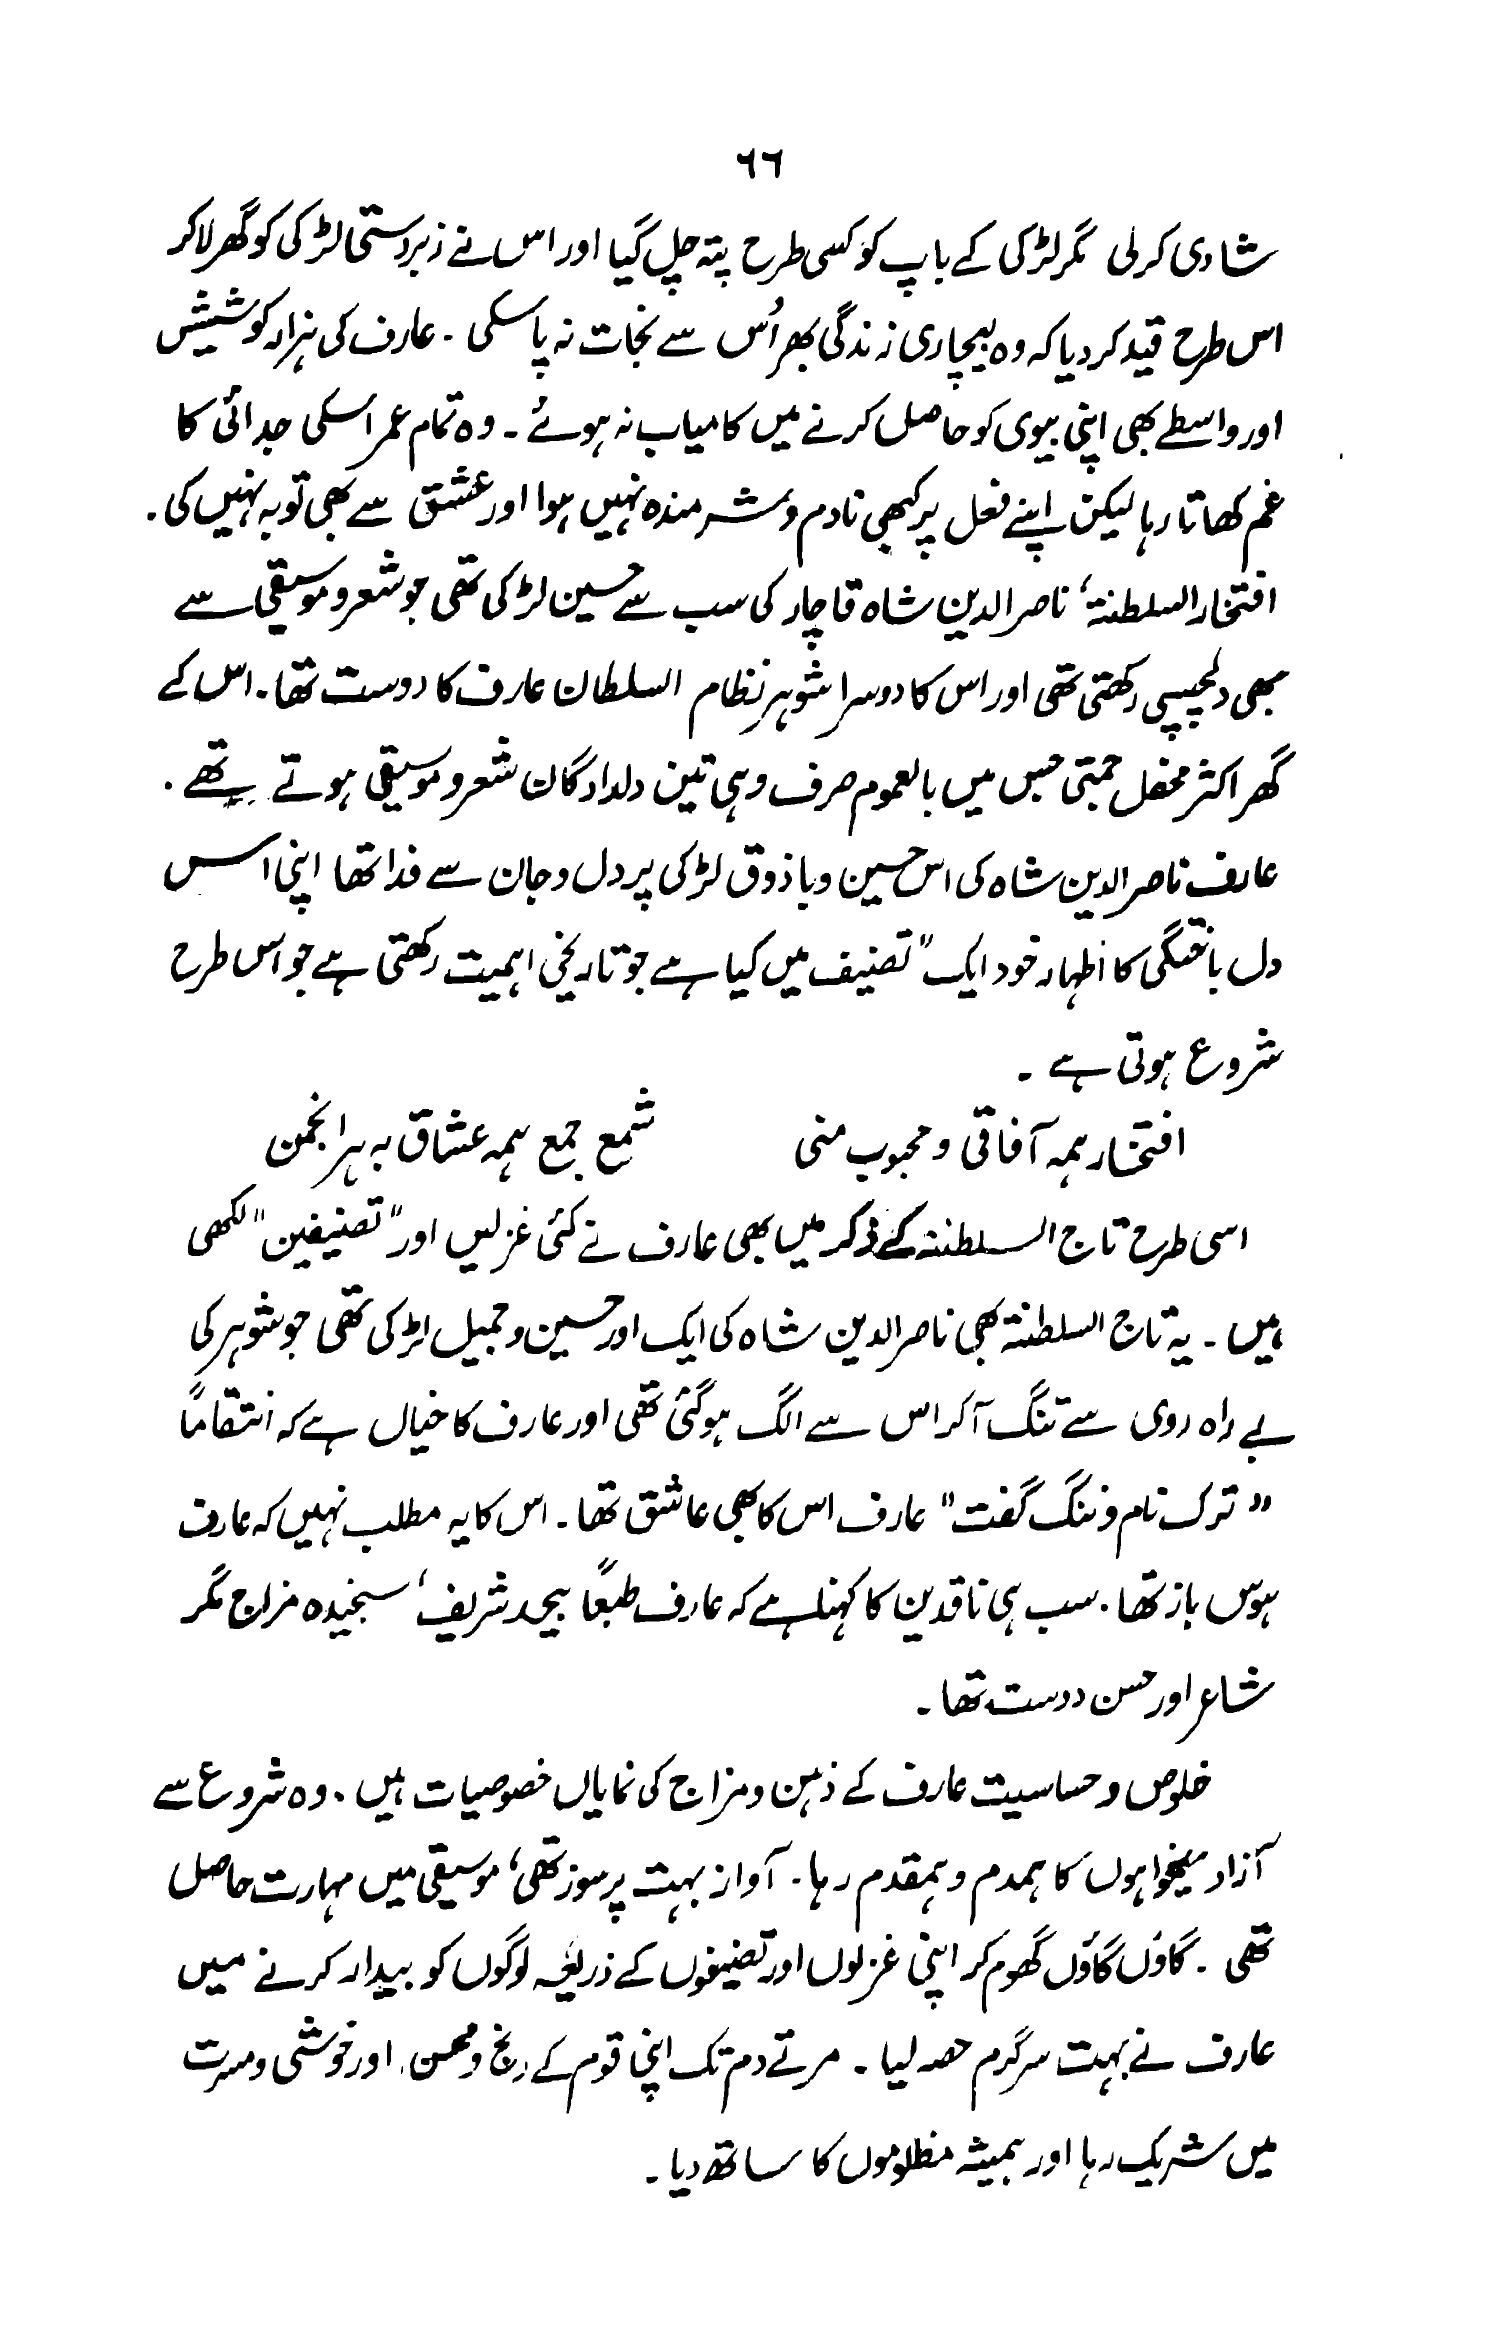 ٦٦
شادی کرلی مگر لڑکی کے باپ کو کسی طرح پتہ چل گیا اور اس نے زبردستی لڑکی کو گھر لاکر
اس طرح قید کر دیا کہ وہ بیچاری زندگی بھر اُس سے نجات نہ پا سکی۔ عارف کی ہزار کوششیں
اور واسطے بھی اپنی بیوی کو حاصل کرنے میں کامیاب نہ ہوئے۔ وہ تمام عمر اسکی جدائی کا
غم کھاتا رہا لیکن اپنے فعل پر کبھی نادم و شرمندہ نہیں ہوا اور عشق سے بھی توبہ نہیں کی۔
افتخار السلطنۃ، ناصر الدین شاہ قاچار کی سب سے حسین لڑکی تھی جو شعر و موسیقی سے
بھی دلچسپی رکھتی تھی اور اس کا دوسرا شوہر نظام السلطان عارف کا دوست تھا۔ اس کے
گھر اکثر محفل جمتی جس میں بالعموم صرف وہی تین دلدادگان شعر و موسیقی ہوتے تھے۔
عارف ناصر الدین شاہ کی اس حسین و باذوق لڑکی پر دل و جان سے فدا تھا اپنی اس
دل باختگی کا اظہار خود ایک "تصنیف میں کیا ہے جو تاریخی اہمیت رکھتی ہے جو اس طرح
شروع ہوتی ہے۔
افتخار ہمہ آفاقی و محبوب منی شمع جمع ہمہ عشاق بہ ہر انجمن
اسی طرح تاج السلطنۃ کے ذکر میں بھی عارف نے کئی غزلیں اور "تصنیفین" لکھی
ہیں۔ یہ تاج السلطنۃ بھی ناصر الدین شاہ کی ایک اور حسین و جمیل لڑکی تھی جو شوہر کی
بے راہ روی سے تنگ آکر اس سے الگ ہوگئی تھی اور عارف کا خیال ہے کہ انتقاماً
"ترک نام و ننگ گفت" عارف اس کا بھی عاشق تھا۔ اس کا یہ مطلب نہیں کہ عارف
ہوس باز تھا۔ سب ہی ناقدین کا کہنا ہے کہ عارف طبعاً بیحد شریف، سنجیدہ مزاج مگر
شاعر اور حسن دوست تھا۔
خلوص و حساسیت عارف کے ذہن و مزاج کی نمایاں خصوصیات ہیں۔ وہ شروع سے
آزاد میخواہوں کا ہمدم و ہمقدم رہا۔ آواز بہت پرسوز تھی، موسیقی میں مہارت حاصل
تھی۔ گاؤں گاؤں گھوم کر اپنی غزلوں اور تصنیفوں کے ذریعہ لوگوں کو بیدار کرنے میں
عارف نے بہت سرگرم حصہ لیا۔ مرتے دم تک اپنی قوم کے رنج و محن، اور خوشی و مسرت
میں شریک رہا اور ہمیشہ مظلوموں کا ساتھ دیا۔